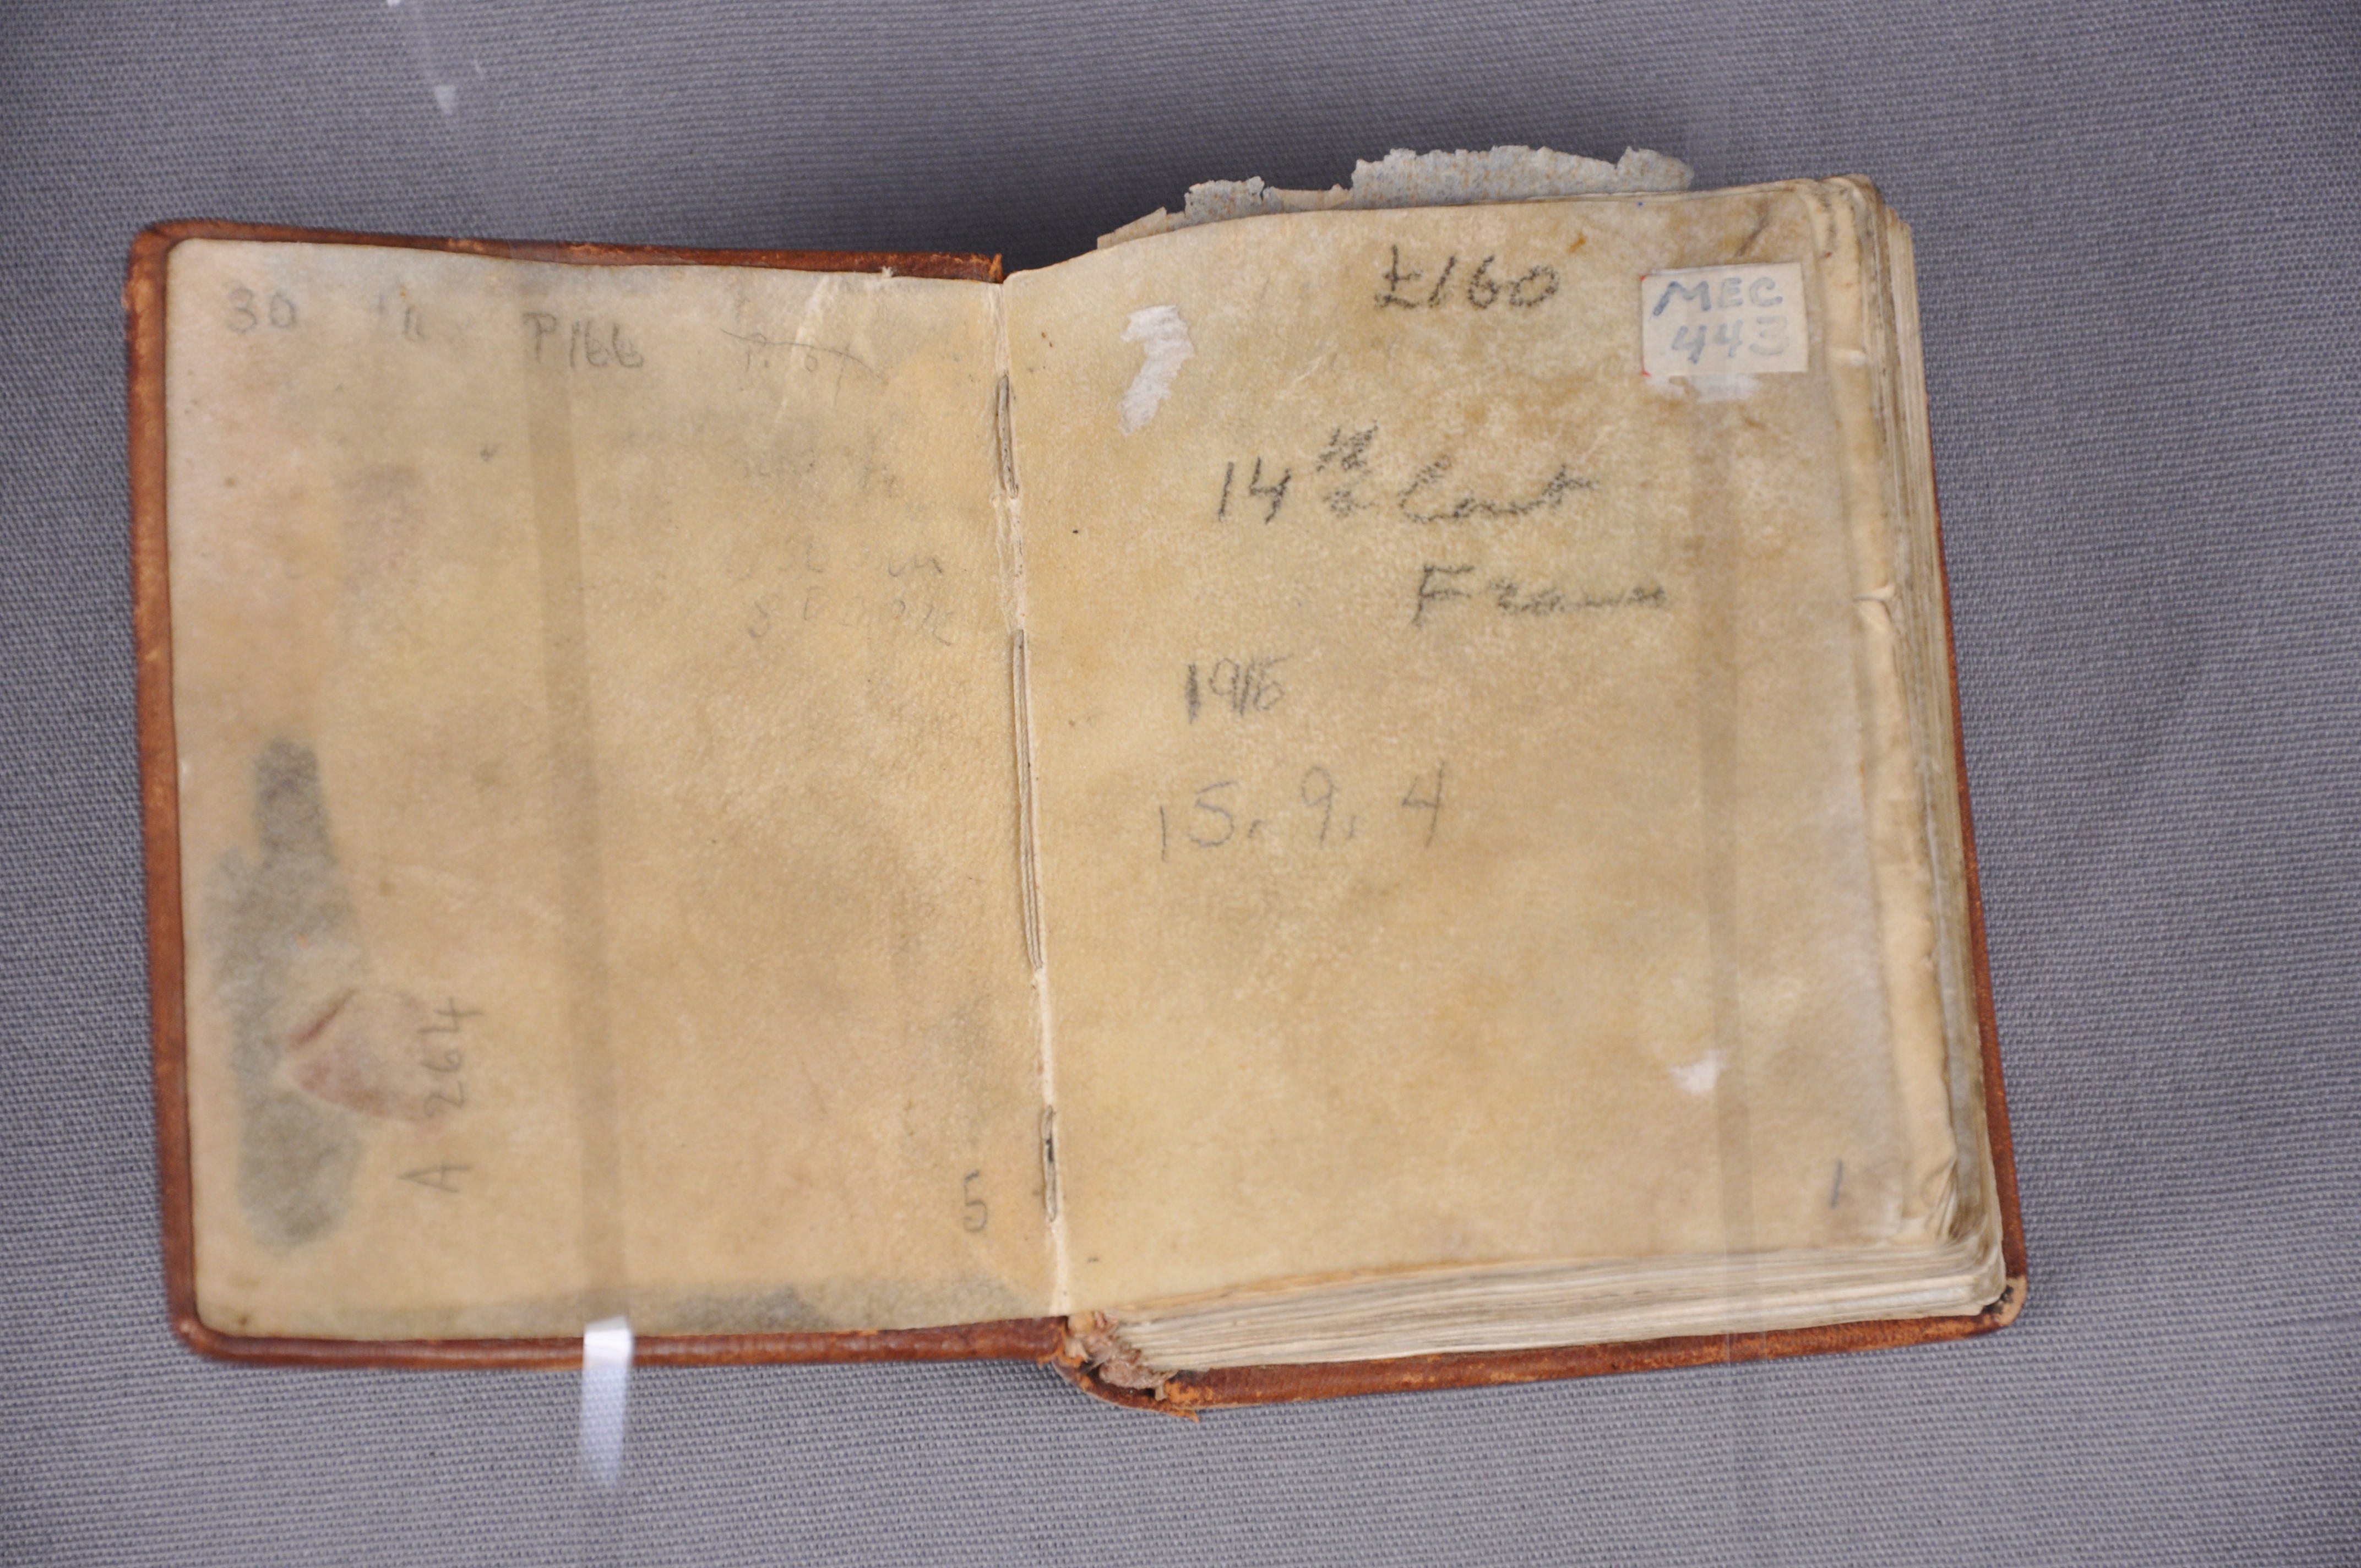 30
P166
A 264
5
£160
MEC
443
14th Cent
France
1916
15. 9. 4
1